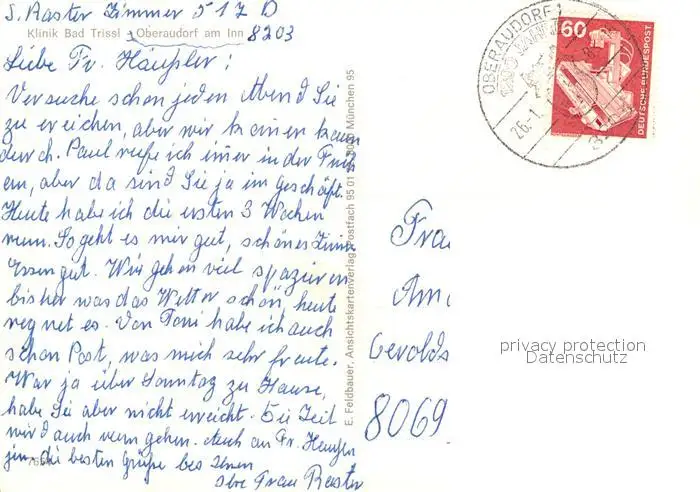 S. Raster Zimmer 517 D
Klinik Bad Trissl Oberaudorf am Inn 8203
Liebe Fr. Häußler!
Versuche schon jeden Abend Sie
zu ereichen, aber wir kommen kaum
durch. Paul rufe ich immer in der Früh
an, aber da sind Sie ja im Geschäft.
Heute habe ich die ersten 3 Wochen
rum. So geht es mir gut, schönes Zimmer
Essen gut. Wir gehen viel spazieren
bisher was das Wetter schön, heute
regnet es. Von Toni habe ich auch
schon Post, was mich sehr freute.
War ja über Sonntag zu Hause,
habe Sie aber nicht erreicht. Die Zeit
wird auch vergehen. Auch an Fr.
die besten Grüße bes Ihnen
Ihre Frau Raster
E. Feldbauer, Ansichtskartenverlag, Postfach 95 01 München 95
OBERAUDORF 1
26.-1.
60
DEUTSCHE BUNDESPOST
Frau
Gerolds
8069
privacy protection
Datenschutz